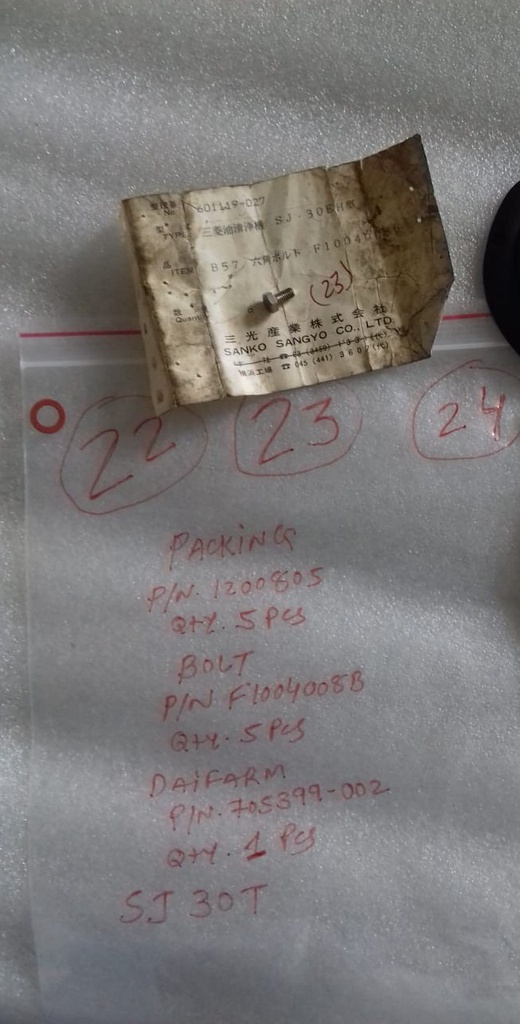 型式番
No 601119-027
型
TYPE 三菱油清浄機 SJ-30EH型
品
ITEM B57 六角ボルト F1004
数
(23)
三光産業株式会社
SANKO SANGYO CO., LTD.
横浜工場 ☎ 045 (441) 3607(代)
22 23 24
PACKING
P/N. 1200805
Qty. 5 Pcs
BOLT
P/N F1004008B
Qty. 5 Pcs
DAIFARM
P/N. 705399-002
Qty. 1 Pcs
SJ 30T